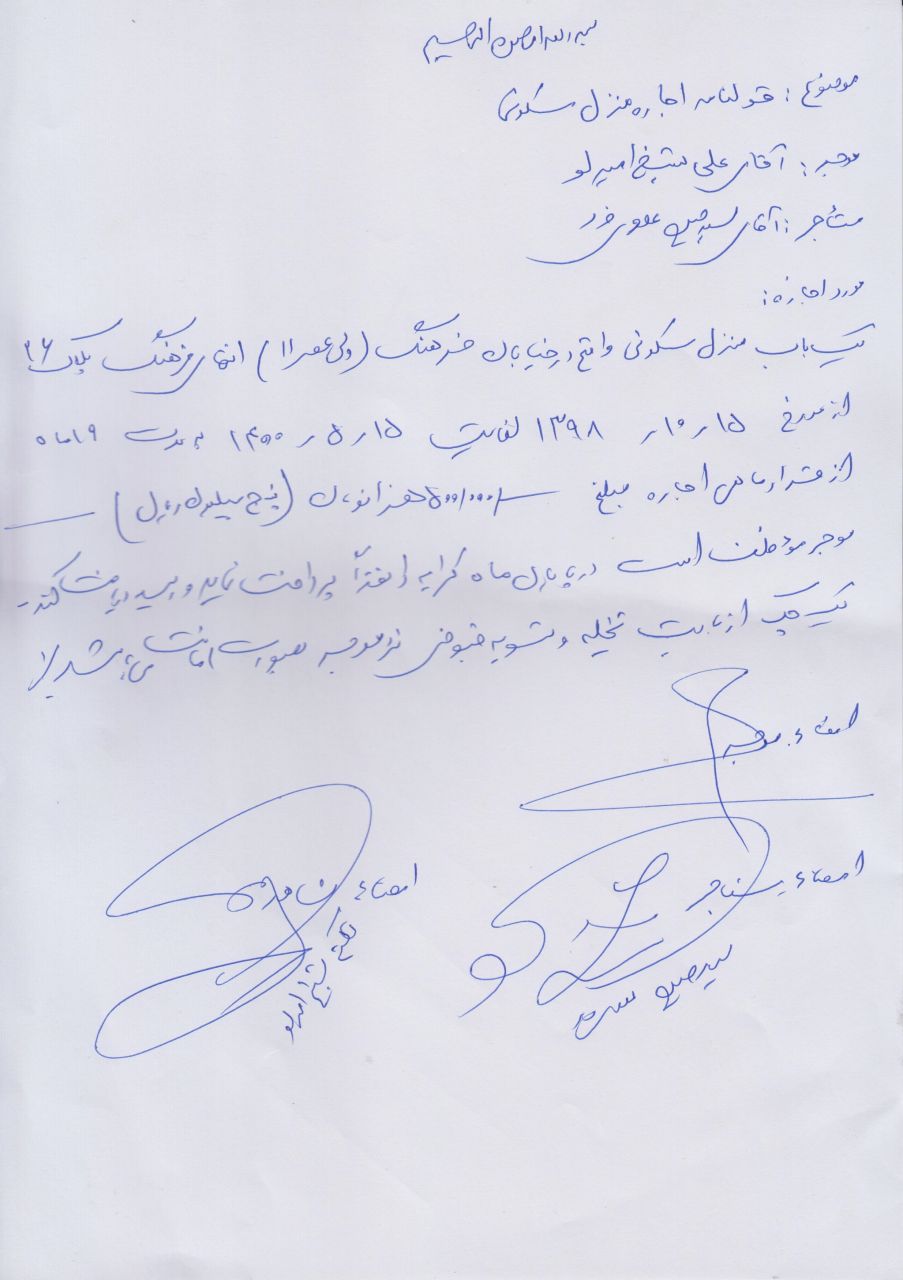 بسم الله الرحمن الرحیم
موضوع: قولنامه اجاره منزل مسکونی
موجر: آقای علی شیخ امیرلو
مستأجر: آقای سید علوی فرد
مورد اجاره:
یک باب منزل مسکونی واقع در خیابان فرهنگ (ولیعصر ۱۱) انتهای فرهنگ پلاک ۲۶
از مورخ ۱۵ر۱۰ر ۱۳۹۸ لغایت ۱۵ر۵ر۱۴۰۰ به مدت ۱۹ ماه
از قرار ماهی اجاره مبلغ ۵۰۰/۰۰۰ هزار تومان (پنج میلیون ریال)
موجر موظف است در پایان ماه کرایه را نقداً پرداخت نماید و رسید دریافت کند.
یک چک از بابت تخلیه و تسویه قبوض نزد موجر بصورت امانت می‌باشد
امضاء موجر
امضاء مستاجر
امضاء شاهد
سید
شیخ امیرلو